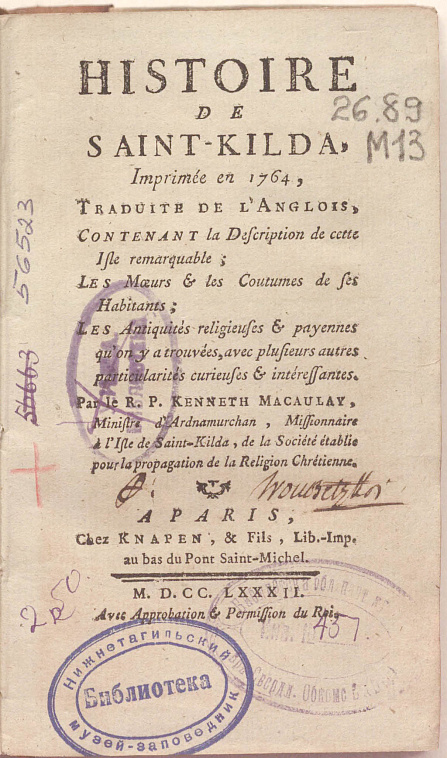 HISTOIRE
DE
SAINT-KILDA,
Imprimée en 1764,
TRADUITE DE L'ANGLOIS,
CONTENANT la Deſcription de cette
Iſle remarquable ;
LES Mœurs & les Coutumes de ſes
Habitants ;
LES Antiquités religieuſes & payennes
qu'on y a trouvées, avec pluſieurs autres
particularités curieuſes & intéreſſantes.
Par le R. P. KENNETH MACAULAY,
Miniſtre d'Ardnamurchan, Miſſionnaire
à l'Iſle de Saint-Kilda, de la Société établie
pour la propagation de la Religion Chrétienne.
A PARIS,
Chez KNAPEN, & Fils, Lib.-Imp.
au bas du Pont Saint-Michel.
M. D. CC. LXXXII.
Avec Approbation & Permiſſion du Roi.
26.89
M13
56523
250.
437
Нижнетагильский
Библиотека
музей-заповедник